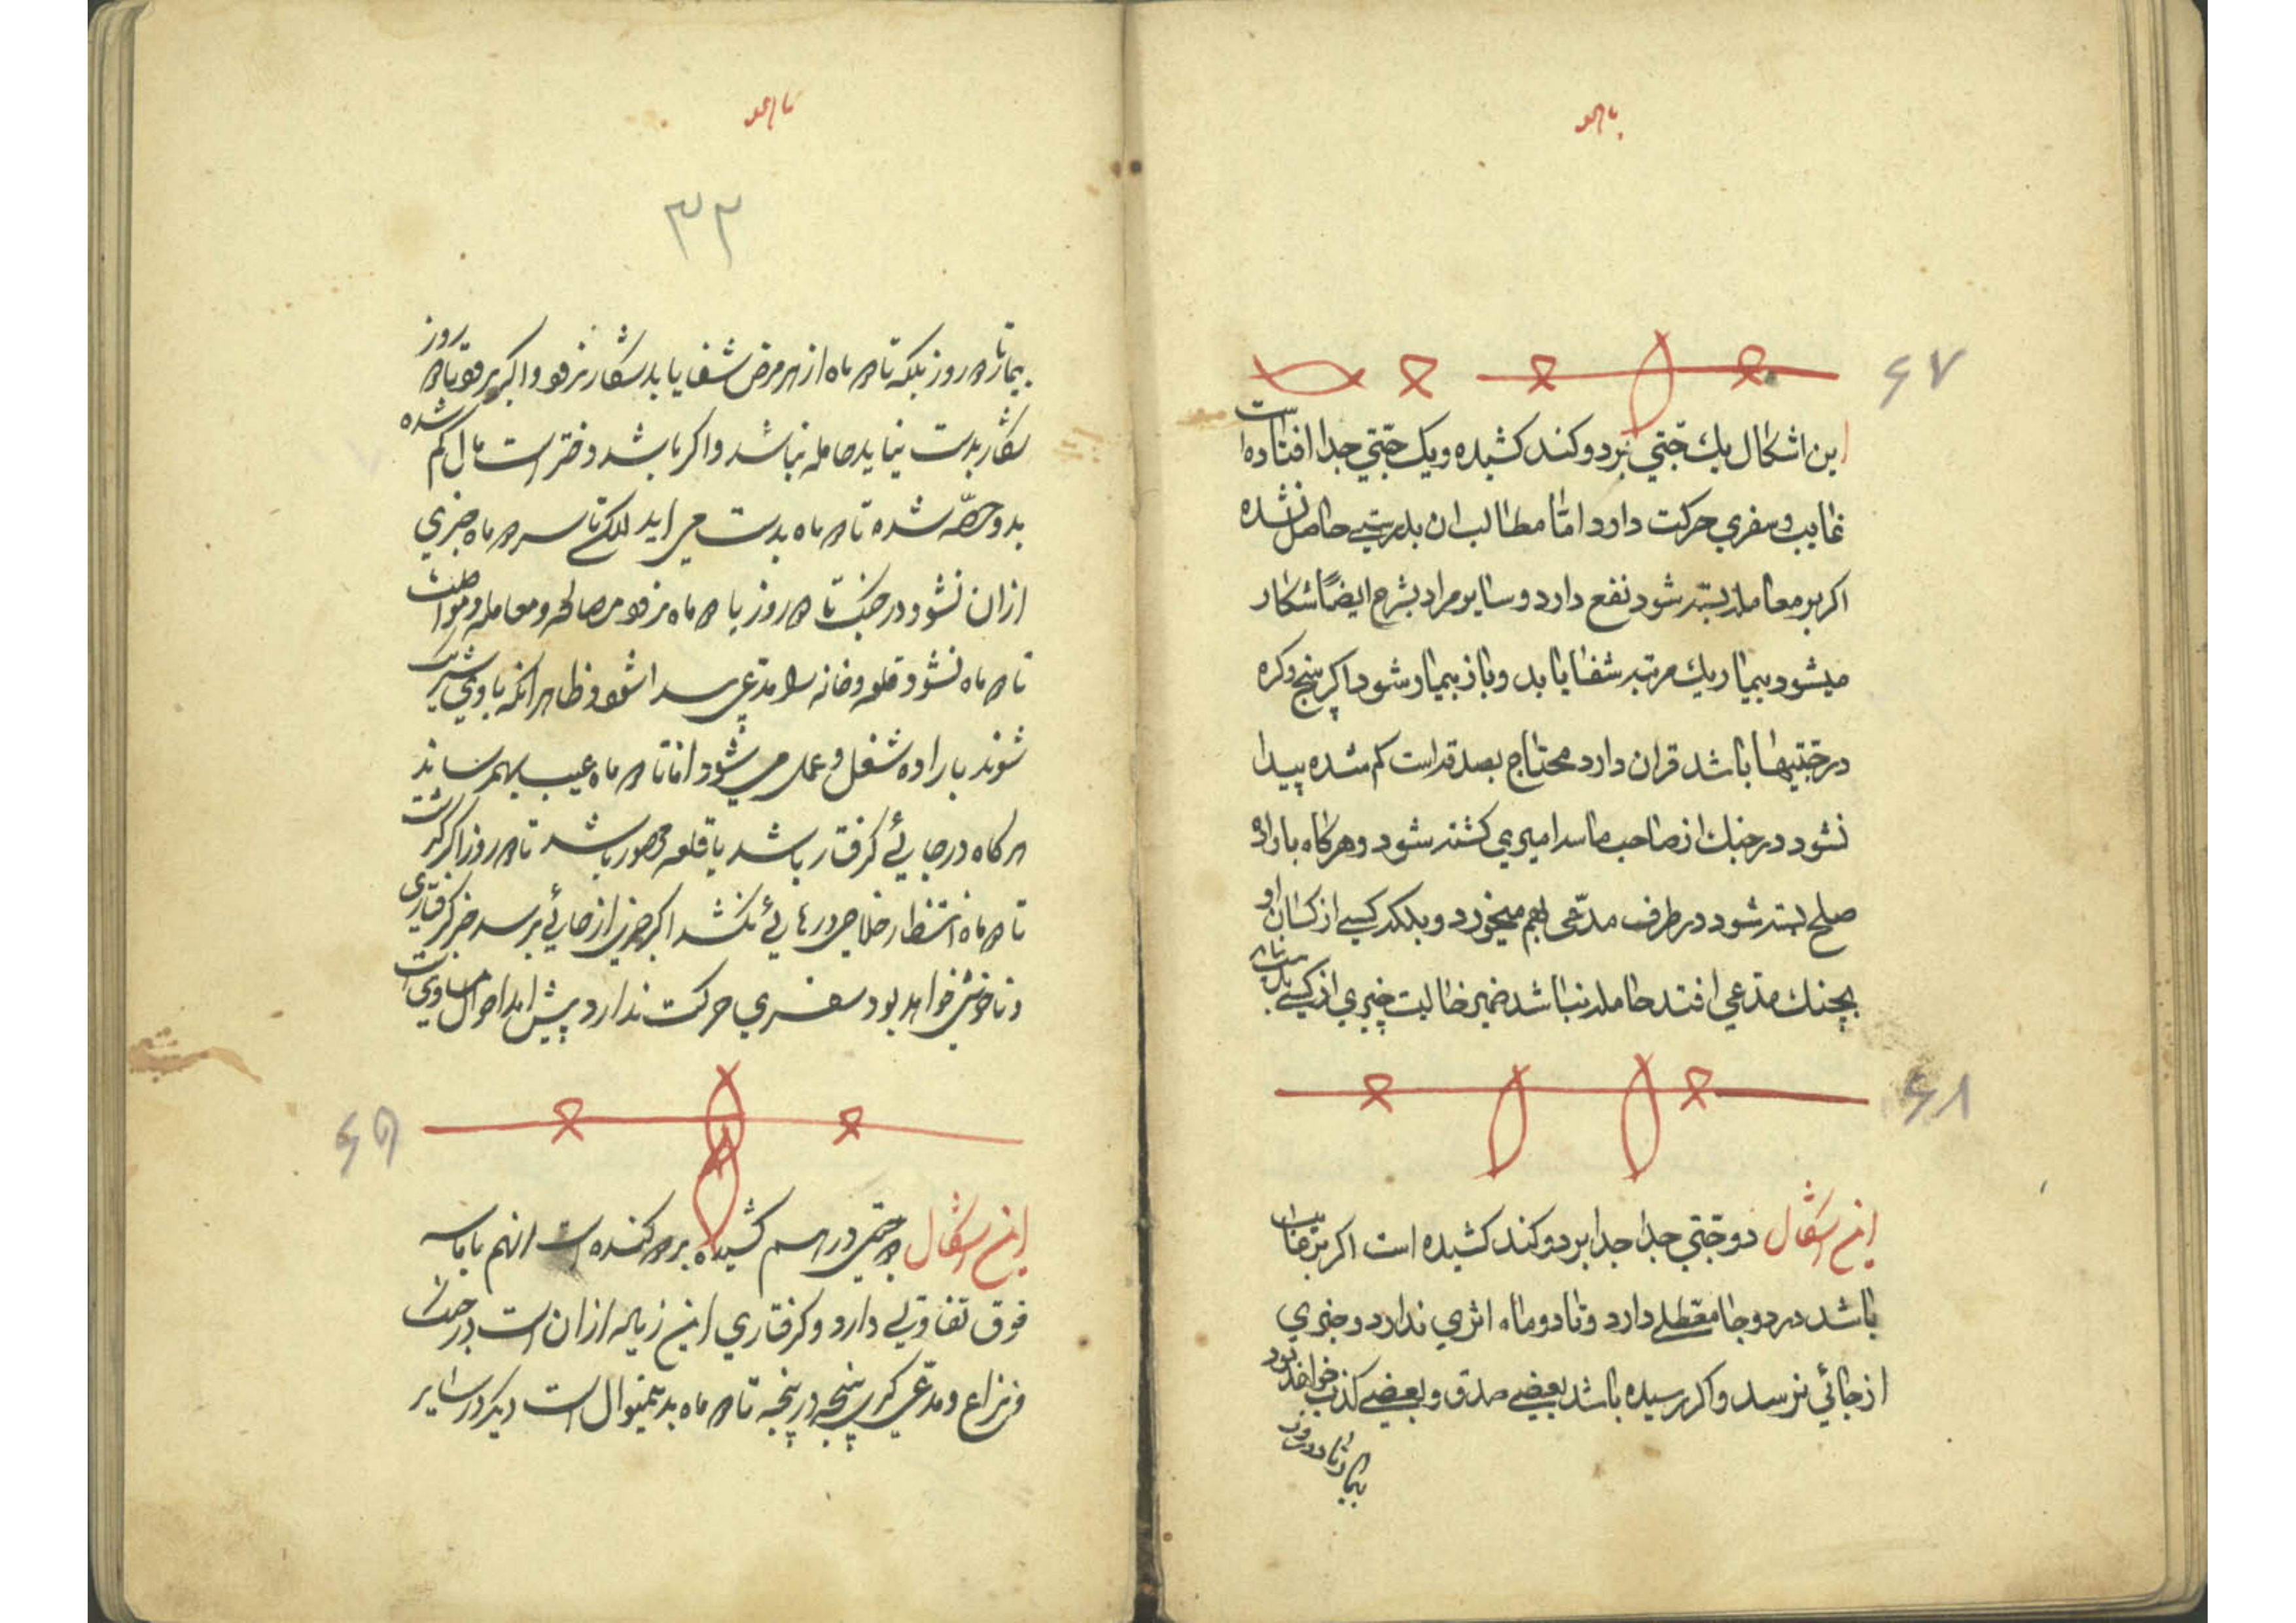 ۶۷
این اشکال یك جتتي بردو کند کشیده ویک جتتي جدا افتاده است
غایب وسفري حرکت دارد امّا مطالب ان بدرستی حاصل نشده
اکر بر معامله بسته شود نفع دارد وسایر مراد بشرح ایضاً شکار
میشود بیمار یك مرتبه شفا یابد وباز بیمار شود اکر پنج وکره
در جتتیها باشد قران دارد محتاج بصدقه است کم شده پیدا
نشود در جنك از صاحب ماسدا میري کشته شود وهرکاه باراده
صلح بسته شود در طرف مدّعی بهم میخورد وبلکه کسی از کسان او
بچنك مدّعي افتد حامله نباشد ضمیر خالیت چیزي از کسی
۶۸
این اشکال دو جتتي جدا جدا بر دو کند کشیده است اکر بر غایب
باشد در دو جا معطلی دارد وتا دو ماه اثري ندارد وخبري
از جائي نرسد واکر رسیده باشد بعضی صدق وبعضی کذب خواهد بود
بیمار تا دو روز
۳۳
بیمار تا ۲ روز بلکه تا ۲ ماه از هر مرض شفا یابد شکار نرفو واکر برفو تا ۲ روز
شکار بدست نیاید حامله نباشد واکر باشد دختر است مال کم شده
بدو حصّه شده تا ۲ ماه بدست می اید تا سر ۲ ماه خبري
ازان نشود در جنک تا ۲ روز یا ۲ ماه نرفو مصالحه ومعامله ومواصلت
تا ۲ ماه نشود قلعه وخانه مدّعی وظاهر انکه باوي شریک
شوند باراده شغل وعمل می شود اما تا ۲ ماه عیب بهم رساند
هرکاه در جائے کرفتار باشد یا قلعه محصور باشد تا ۲ روز اکر کذشت
تا ۲ ماه انتظار خلاصی ورهائے نکشد اکر خبري از جائے برسد خبر کرفتاري
وناخوشی خواهد بود سفري حرکت ندارد پیش امد احوال مساوي است
۶۹
این اشکال ۲ جتتي در هم کشیده بر ۲ کنده است انهم با
فوق تفاوتے دارد وکرفتاري این زیاده ازان است در
ونزاع ومدّعی کري پنجه در پنجه تا ۲ ماه بدینمنوال است دیکر در سایر